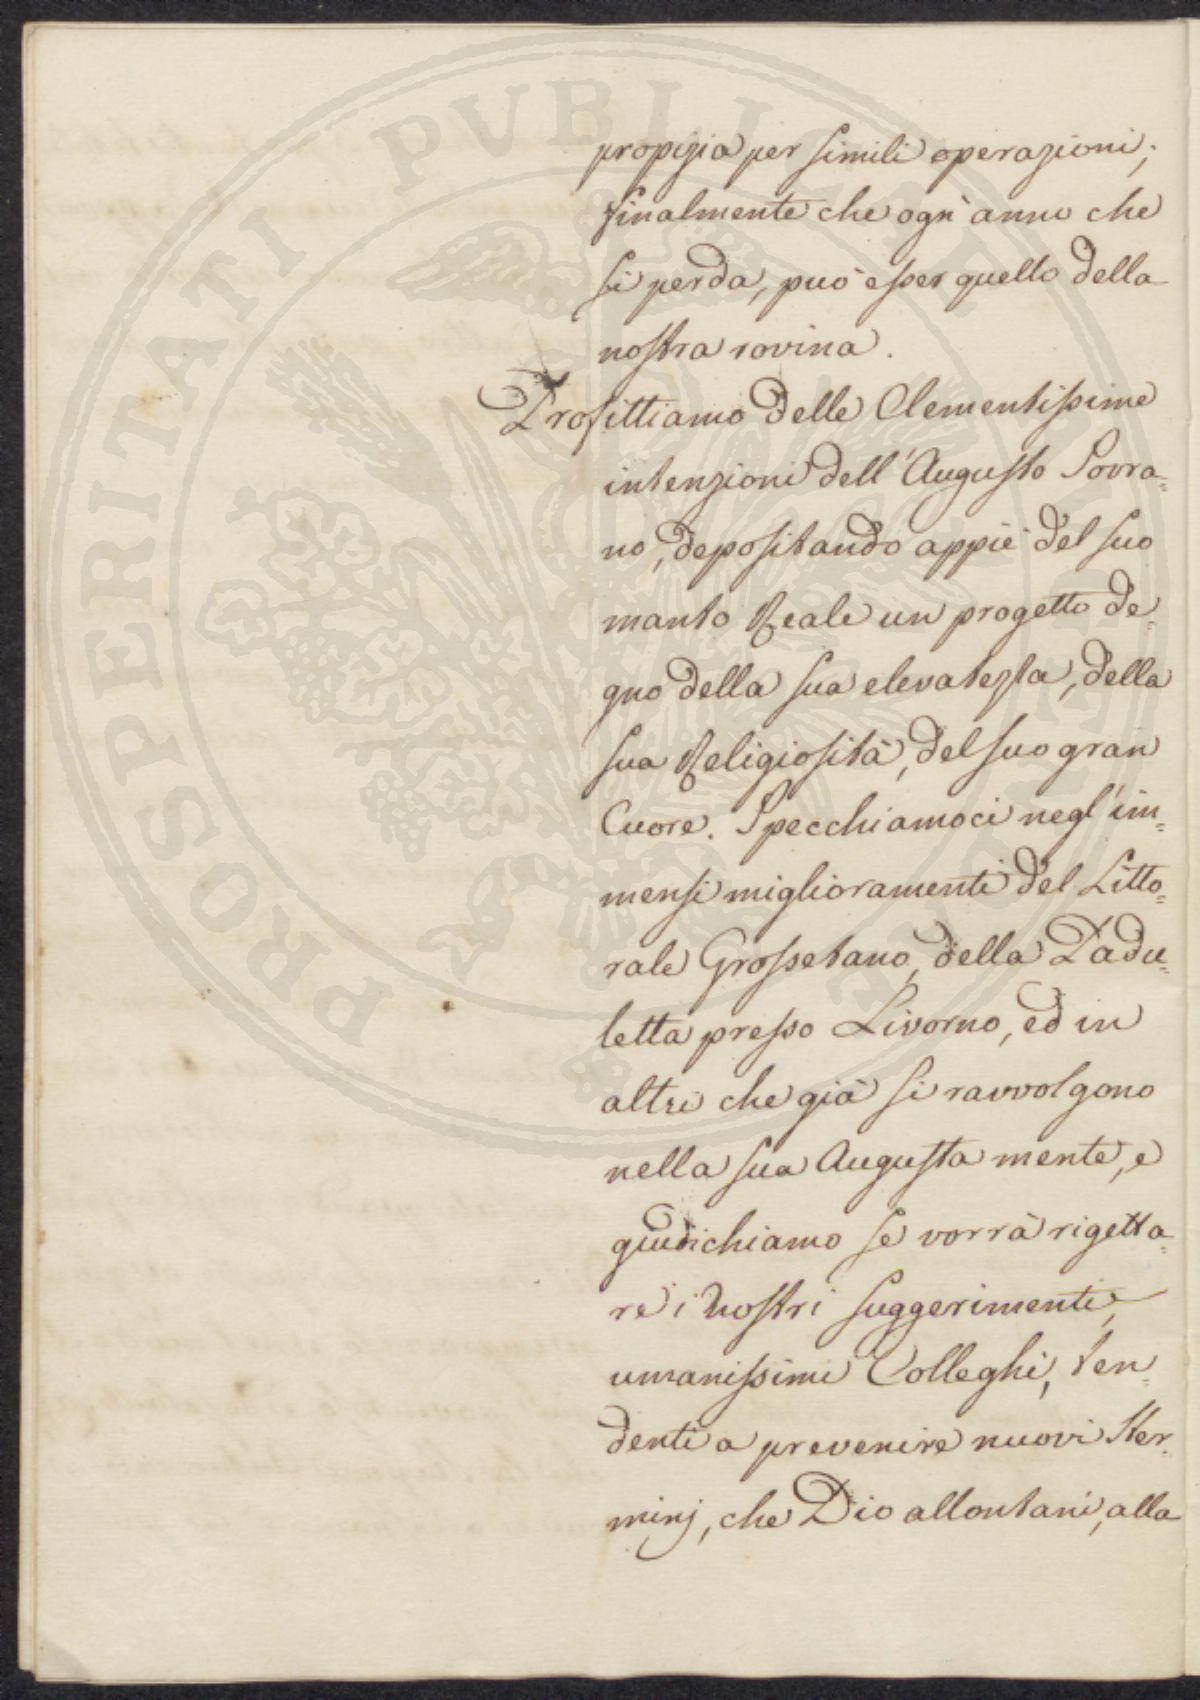 PROSPERITATI PUBLICAE AUGENDAE
propizia per simili operazioni;
finalmente che ogn'anno che
si perda, può esser quello della
nostra rovina.
Profittiamo delle Clementissime
intenzioni dell'Augusto Sovra=
no, depositando appiè del suo
manto Reale un progetto de=
gno della sua elevatezza, della
sua Religiosità, del suo gran
Cuore. Specchiamoci negl'im=
mensi miglioramenti del Litto=
rale Grossetano, della Padu=
letta presso Livorno, ed in
altri che già si ravvolgono
nella sua Augusta mente, e
giudichiamo se vorrà rigetta=
re i nostri suggerimenti,
umanissimi Colleghi, ten=
denti a prevenire nuovi ster=
minj, che Dio allontani, alla